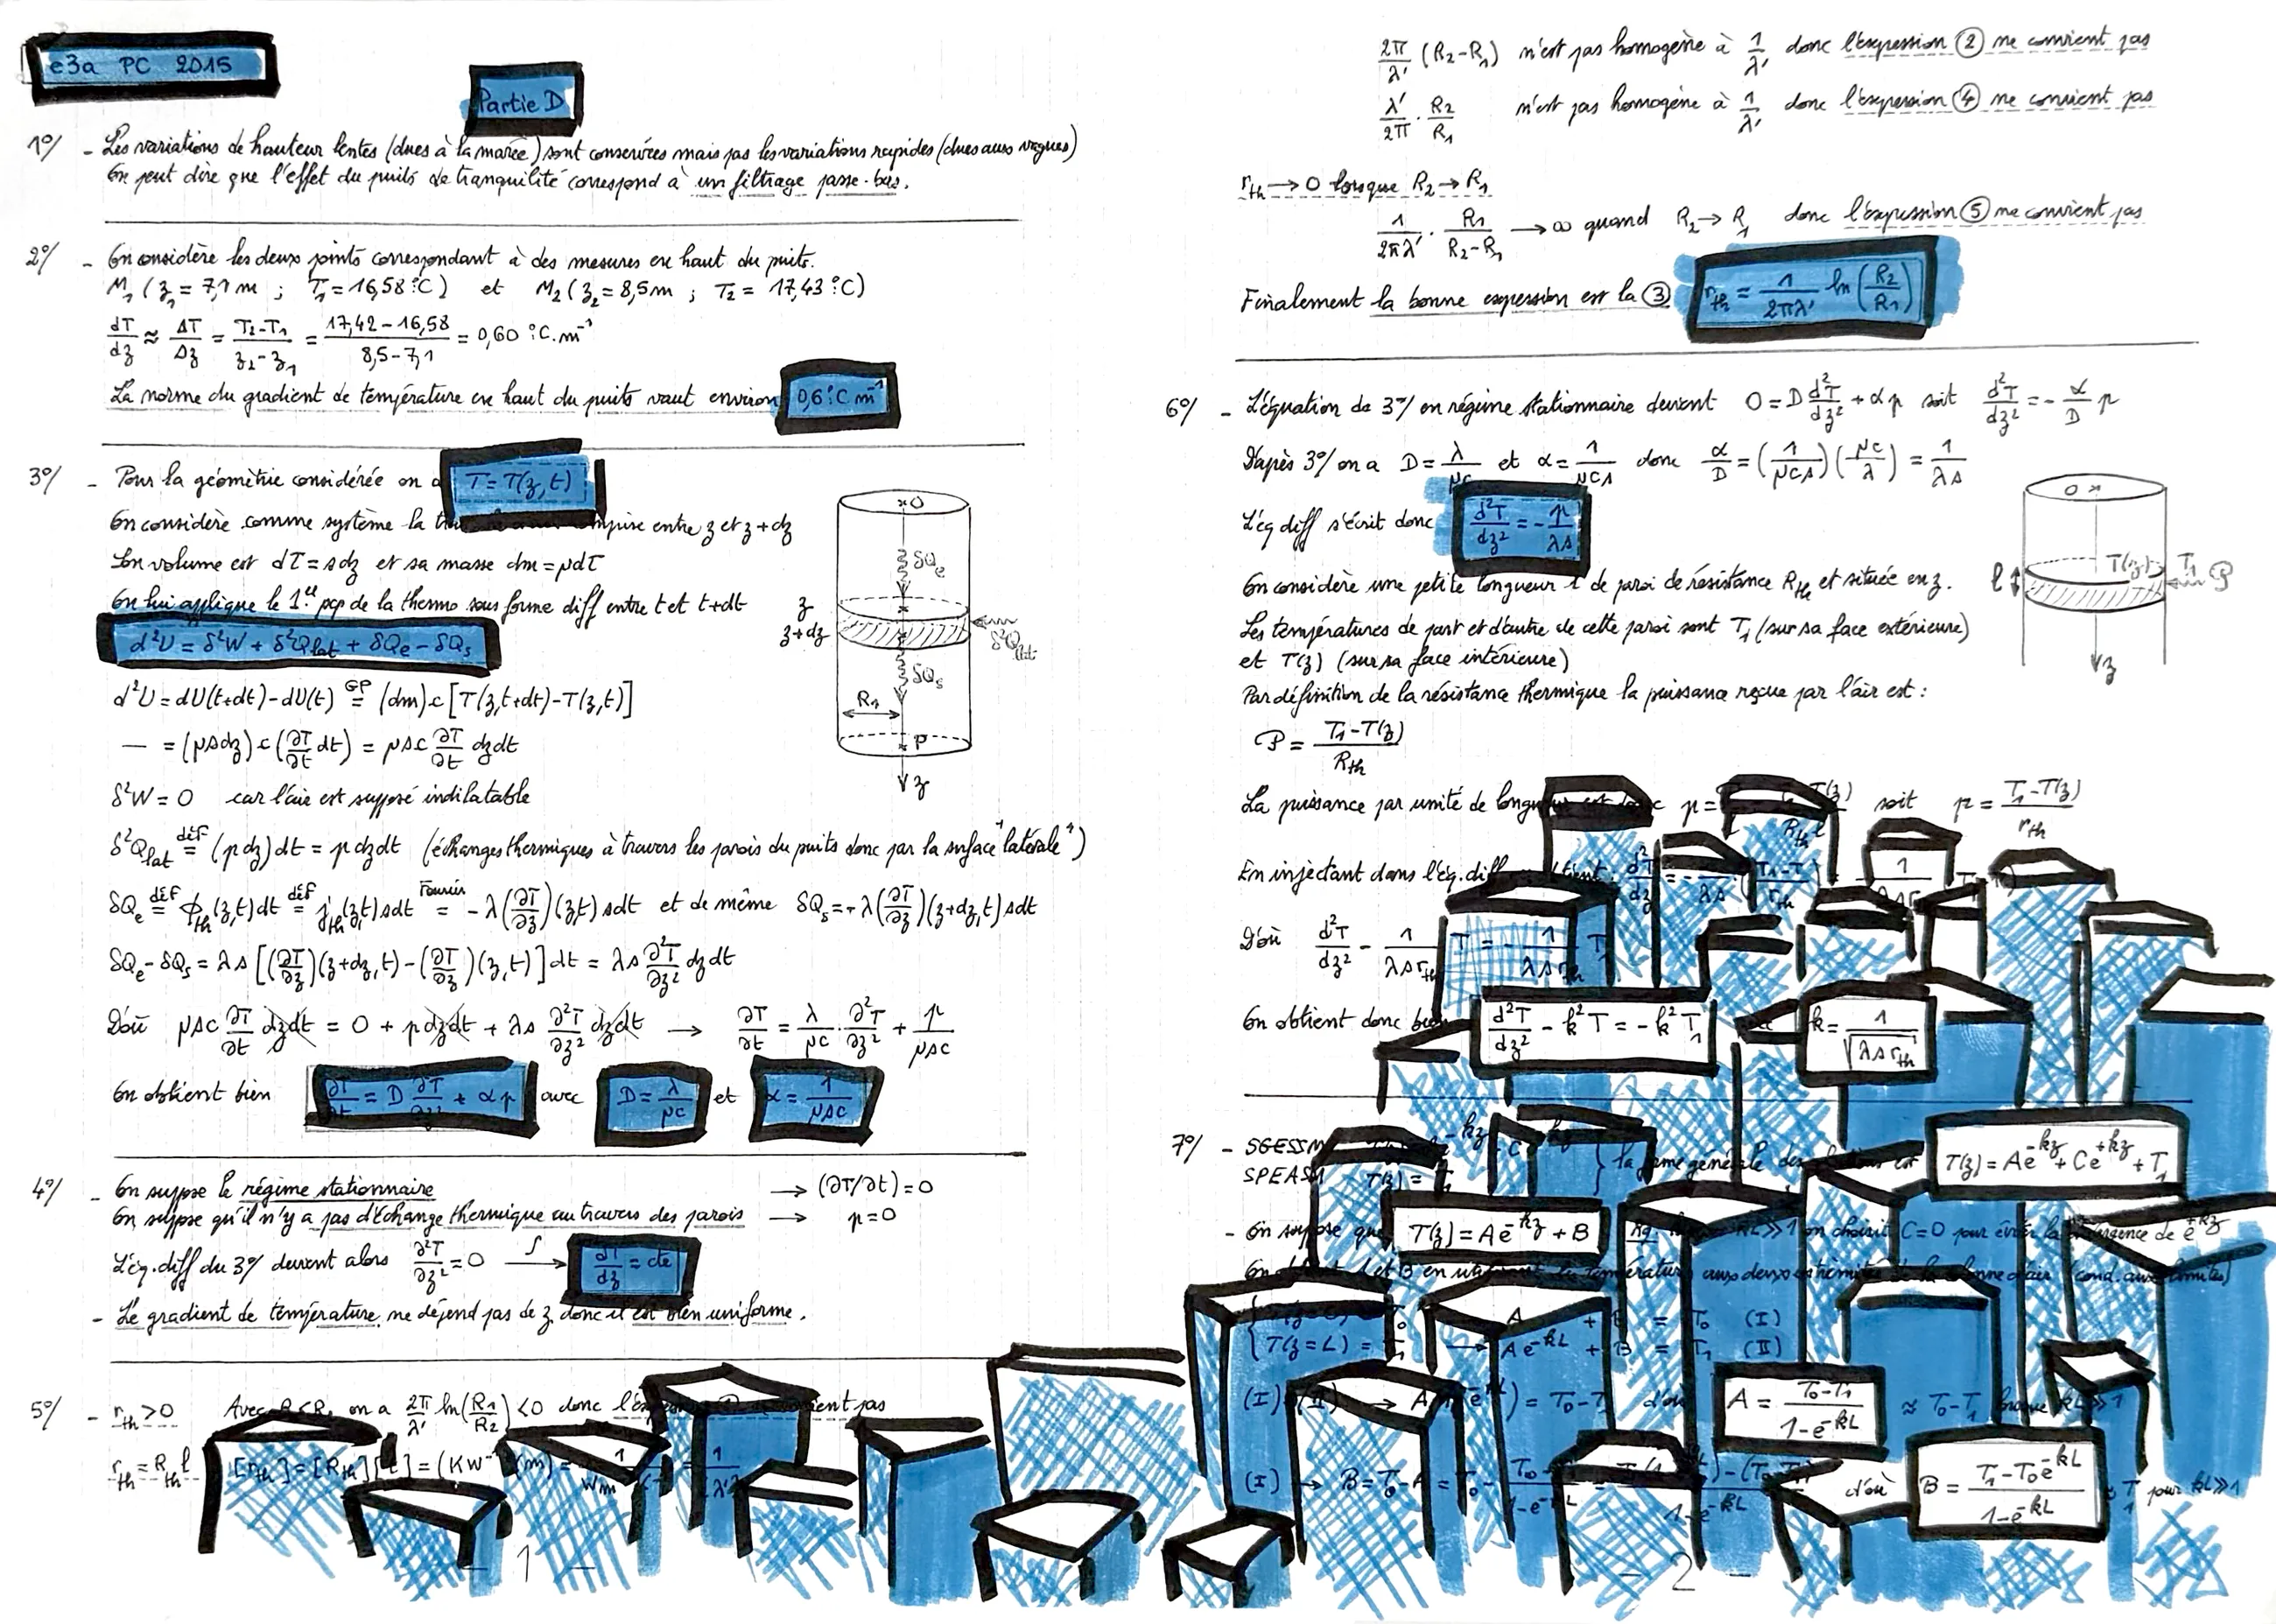 e3a PC 2015
Partie D
1°/ - Les variations de hauteur lentes (dues à la marée) sont conservées mais pas les variations rapides (dues aux vagues)
On peut dire que l'effet du puits de tranquilité correspond à un filtrage passe-bas.
2°/ - On considère les deux points correspondant à des mesures en haut du puits.
M₁ (z₁ = 7,1 m ; T₁ = 16,58 °C) et M₂ (z₂ = 8,5 m ; T₂ = 17,43 °C)
dT/dz ≈ ΔT/Δz = (T₂-T₁)/(z₂-z₁) = (17,42-16,58)/(8,5-7,1) = 0,60 °C.m⁻¹
La norme du gradient de température en haut du puits vaut environ 0,6 °C m⁻¹
3°/ - Pour la géométrie considérée on a T = T(z,t)
On considère comme système la comprise entre z et z+dz
Son volume est dτ = s dz et sa masse dm = μdτ
On lui applique le 1er pcp de la thermo sous forme diff entre t et t+dt
d²U = δ²W + δ²Qlat + δQe - δQs
d²U = dU(t+dt) - dU(t) =GP (dm) c [T(z,t+dt) - T(z,t)]
— = (μsdz) c (∂T/∂t dt) = μsc ∂T/∂t dz dt
δ²W = 0 car l'air est supposé indilatable
δ²Qlat =déf (p dz) dt = p dz dt (échanges thermiques à travers les parois du puits donc par la surface "latérale")
δQe =déf ϕth(z,t) dt =déf jth(z,t) s dt =Fourier -λ(∂T/∂z)(z,t) s dt et de même δQs = -λ(∂T/∂z)(z+dz,t) s dt
δQe - δQs = λs [(∂T/∂z)(z+dz,t) - (∂T/∂z)(z,t)] dt = λs ∂²T/∂z² dz dt
D'où μsc ∂T/∂t dz dt = 0 + p dz dt + λs ∂²T/∂z² dz dt → ∂T/∂t = λ/μc · ∂²T/∂z² + p/μsc
On obtient bien ∂T/∂t = D ∂²T/∂z² + α p avec D = λ/μc et α = 1/μsc
O
δQe
z
z+dz
δ²Qlat
δQs
R₁
P
z
4°/ - On suppose le régime stationnaire → (∂T/∂t) = 0
On suppose qu'il n'y a pas d'échange thermique au travers des parois → p = 0
L'éq. diff du 3°/ devient alors ∂²T/∂z² = 0 ∫→ dT/dz = cte
- Le gradient de température ne dépend pas de z donc il est bien uniforme.
5°/ - rth > 0 Avec on a 2π/λ' ln(R₁/R₂) < 0 donc pas
rth = Rth l [rth] = [Rth][l] = (KW⁻¹)(m) =
- 1 -
2π/λ' (R₂-R₁) n'est pas homogène à 1/λ' donc l'expression ② ne convient pas
λ'/2π · R₂/R₁ n'est pas homogène à 1/λ' donc l'expression ④ ne convient pas
rth → 0 lorsque R₂ → R₁
1/2πλ' · R₁/(R₂-R₁) → ∞ quand R₂ → R₁ donc l'expression ⑤ ne convient pas
Finalement la bonne expression est la ③ rth = 1/2πλ' ln(R₂/R₁)
6°/ - L'équation de 3°/ en régime stationnaire devient 0 = D d²T/dz² + α p soit d²T/dz² = - α/D p
D'après 3°/ on a D = λ/μc et α = 1/μcs donc α/D = (1/μcs)(μc/λ) = 1/λs
L'éq diff s'écrit donc d²T/dz² = - p/λs
On considère une petite longueur l de paroi de résistance Rth et située en z.
Les températures de part et d'autre de cette paroi sont T₁ (sur sa face extérieure)
et T(z) (sur sa face intérieure)
Par définition de la résistance thermique la puissance reçue par l'air est :
P = (T₁-T(z))/Rth
O
l
T₁
P
z
La puissance par unité de longueur est donc p = soit p = (T₁-T(z))/rth
En injectant dans l'éq. diff
D'où d²T/dz² - 1/λsrth T = - 1/λsrth T₁
On obtient donc bien d²T/dz² - k²T = -k²T₁ k = 1/√(λsrth)
7°/ - SGESSM
SPEASM T(z) = T₁ } la forme générale des est T(z) = Ae^-kz + Ce^+kz + T₁
- On suppose que T(z) = Ae^-kz + B kL ≫ 1 on choisit C = 0 pour éviter la divergence de e^+kz
On obtient A et B en utilisant les températures aux deux extrémités de la colonne d'air (cond. aux limites)
T₀ A + B = T₀ (I)
T(z=L) = T₁ → Ae^-kL + B = T₁ (II)
(I)-(II) → A(1-e^-kL) = T₀-T₁ d'où A = (T₀-T₁)/(1-e^-kL) ≈ T₀-T₁ lorsque kL ≫ 1
(I) → B = T₀-A = T₀ - d'où B = (T₁-T₀e^-kL)/(1-e^-kL) ≈ T₁ pour kL ≫ 1
- 2 -